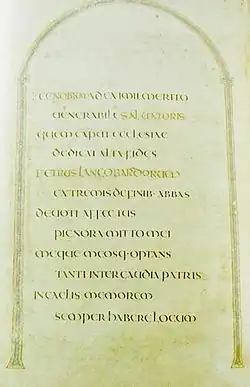 CENOBIUM AD EXIMII MERITO
UENERABILE SALUATORIS
QUEM CAPUT ECCLESIAE
DEDICAT ALTA FIDES
PETRUS LANGOBARDORUM
EXTREMIS DE FINIB· ABBAS
DEUOTI AFFECTUS
PIGNORA MITTO MEI
MEQUE MEOSQ· OPTANS
TANTI INTER GAUDIA PATRIS
IN CAELIS MEMOREM
SEMPER HABERE LOCUM